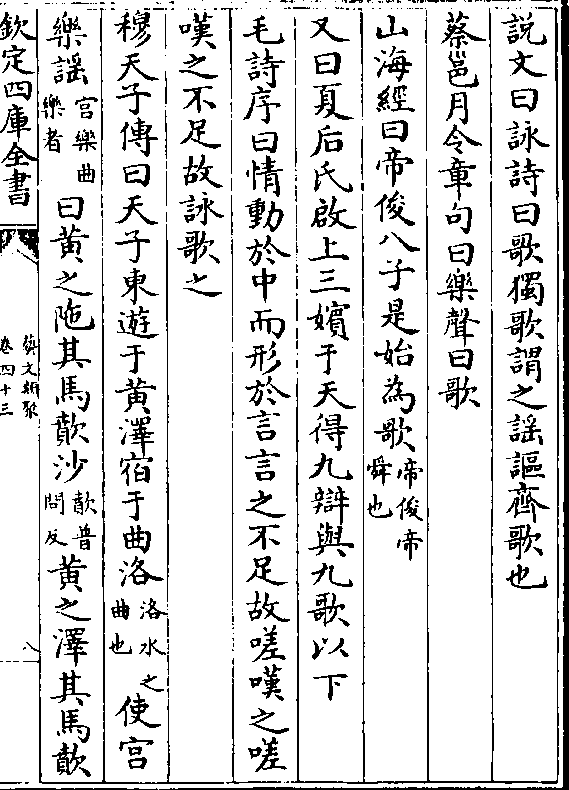 說文曰詠詩曰歌獨歌謂之謡謳齊歌也
蔡邕月令章句曰樂聲曰歌
山海經曰帝俊八子是始為歌帝俊帝舜也
又曰夏后氏啟上三嬪于天得九辯與九歌以下
毛詩序曰情動於中而形於言言之不足故嗟嘆之嗟
嘆之不足故詠歌之
穆天子傳曰天子東遊于黄澤宿于曲洛洛水之曲也使宫
樂謡宫樂曲樂者曰黄之陁其馬歕沙歕普問反黄之澤其馬歕
欽定四庫全書
藝文類聚
卷四十三
八